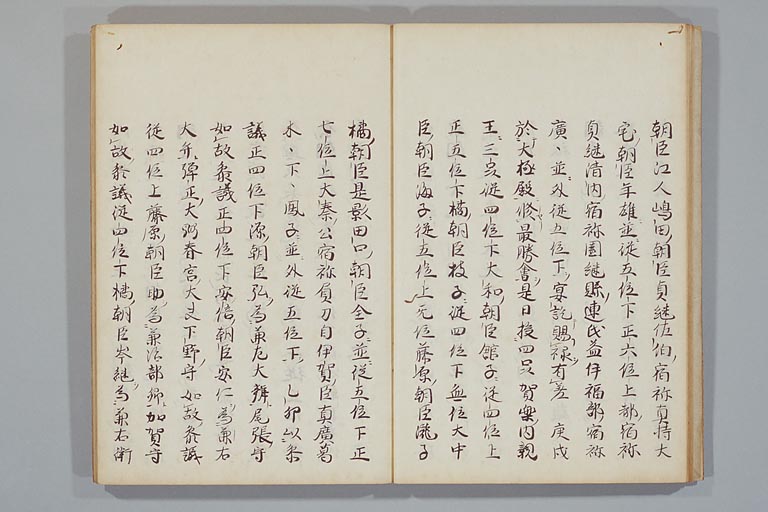 朝臣江人嶋田朝臣貞継佐伯宿祢真持大
宅朝臣年雄並従五位下正六位上都宿祢
貞継清内宿祢国継縣連氏益伴福部宿祢
廣〻並外従五位下宴訖賜禄有差 庚戌
於大極殿修最勝會是日授四品賀楽内親
王三品従四位下大和朝臣館子従四位上
正五位下橘朝臣枝子従四位下無位大中
臣朝臣海子従五位上无位藤原朝臣瀧子
橘朝臣是影田口朝臣全子並従五位下正
七位上大秦公宿祢員刀自伊賀臣真廣葛
木〻下〻鳳子並外従五位下 乙卯以参
議正四位下源朝臣弘為兼左大辨尾張守
如故参議正四位下安倍朝臣安仁為兼右
大弁弾正大弼春宮大夫下野守如故参議
従四位上藤原朝臣助為兼治部卿加賀守
如故参議従四位下橘朝臣岑継為兼右衛